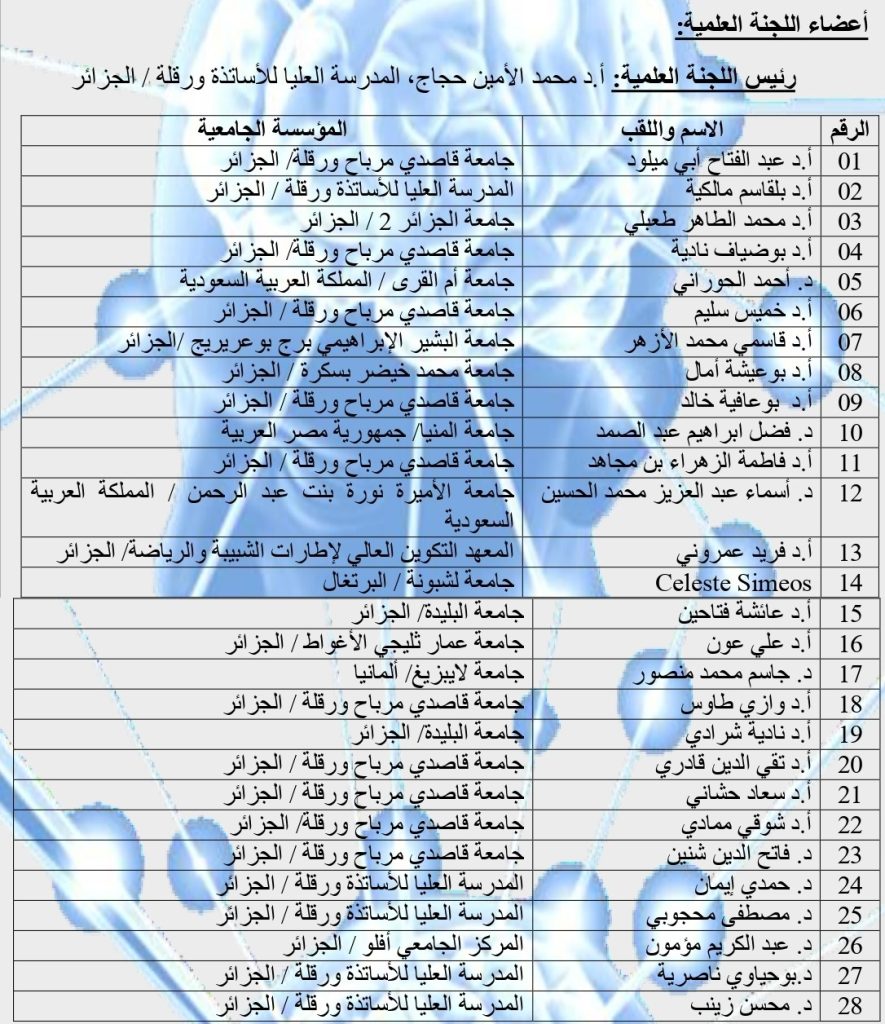 أعضاء اللجنة العلمية:
رئيس اللجنة العلمية: أ.د محمد الأمين حجاج، المدرسة العليا للأساتذة ورقلة / الجزائر
الرقم الاسم واللقب المؤسسة الجامعية
01 أ.د عبد الفتاح أبي ميلود جامعة قاصدي مرباح ورقلة/ الجزائر
02 أ.د بلقاسم مالكية المدرسة العليا للأساتذة ورقلة / الجزائر
03 أ.د محمد الطاهر طعبلي جامعة الجزائر 2 / الجزائر
04 أ.د بوضياف نادية جامعة قاصدي مرباح ورقلة/ الجزائر
05 د. أحمد الحوراني جامعة أم القرى / المملكة العربية السعودية
06 أ.د خميس سليم جامعة قاصدي مرباح ورقلة / الجزائر
07 أ.د قاسمي محمد الأزهر جامعة البشير الإبراهيمي برج بوعريريج /الجزائر
08 أ.د بوعيشة أمال جامعة محمد خيضر بسكرة / الجزائر
09 أ.د بوعافية خالد جامعة قاصدي مرباح ورقلة / الجزائر
10 د. فضل ابراهيم عبد الصمد جامعة المنيا/ جمهورية مصر العربية
11 أ.د فاطمة الزهراء بن مجاهد جامعة قاصدي مرباح ورقلة / الجزائر
12 د. أسماء عبد العزيز محمد الحسين جامعة الأميرة نورة بنت عبد الرحمن / المملكة العربية
السعودية
13 أ.د فريد عمروني المعهد التكوين العالي لإطارات الشبيبة والرياضة/ الجزائر
14 Celeste Simeos جامعة لشبونة / البرتغال
15 أ.د عائشة فتاحين جامعة البليدة/ الجزائر
16 أ.د علي عون جامعة عمار ثليجي الأغواط / الجزائر
17 د. جاسم محمد منصور جامعة لايبزيغ/ ألمانيا
18 أ.د وازي طاوس جامعة قاصدي مرباح ورقلة / الجزائر
19 أ.د نادية شرادي جامعة البليدة/ الجزائر
20 أ.د تقي الدين قادري جامعة قاصدي مرباح ورقلة / الجزائر
21 أ.د سعاد حشاني جامعة قاصدي مرباح ورقلة / الجزائر
22 أ.د شوقي ممادي جامعة قاصدي مرباح ورقلة/ الجزائر
23 د. فاتح الدين شنين جامعة قاصدي مرباح ورقلة / الجزائر
24 د. حمدي إيمان المدرسة العليا للأساتذة ورقلة / الجزائر
25 د. مصطفى محجوبي المدرسة العليا للأساتذة ورقلة / الجزائر
26 د. عبد الكريم مؤمون المركز الجامعي أفلو / الجزائر
27 د.بوجياوي ناصرية المدرسة العليا للأساتذة ورقلة / الجزائر
28 د. محسن زينب المدرسة العليا للأساتذة ورقلة / الجزائر